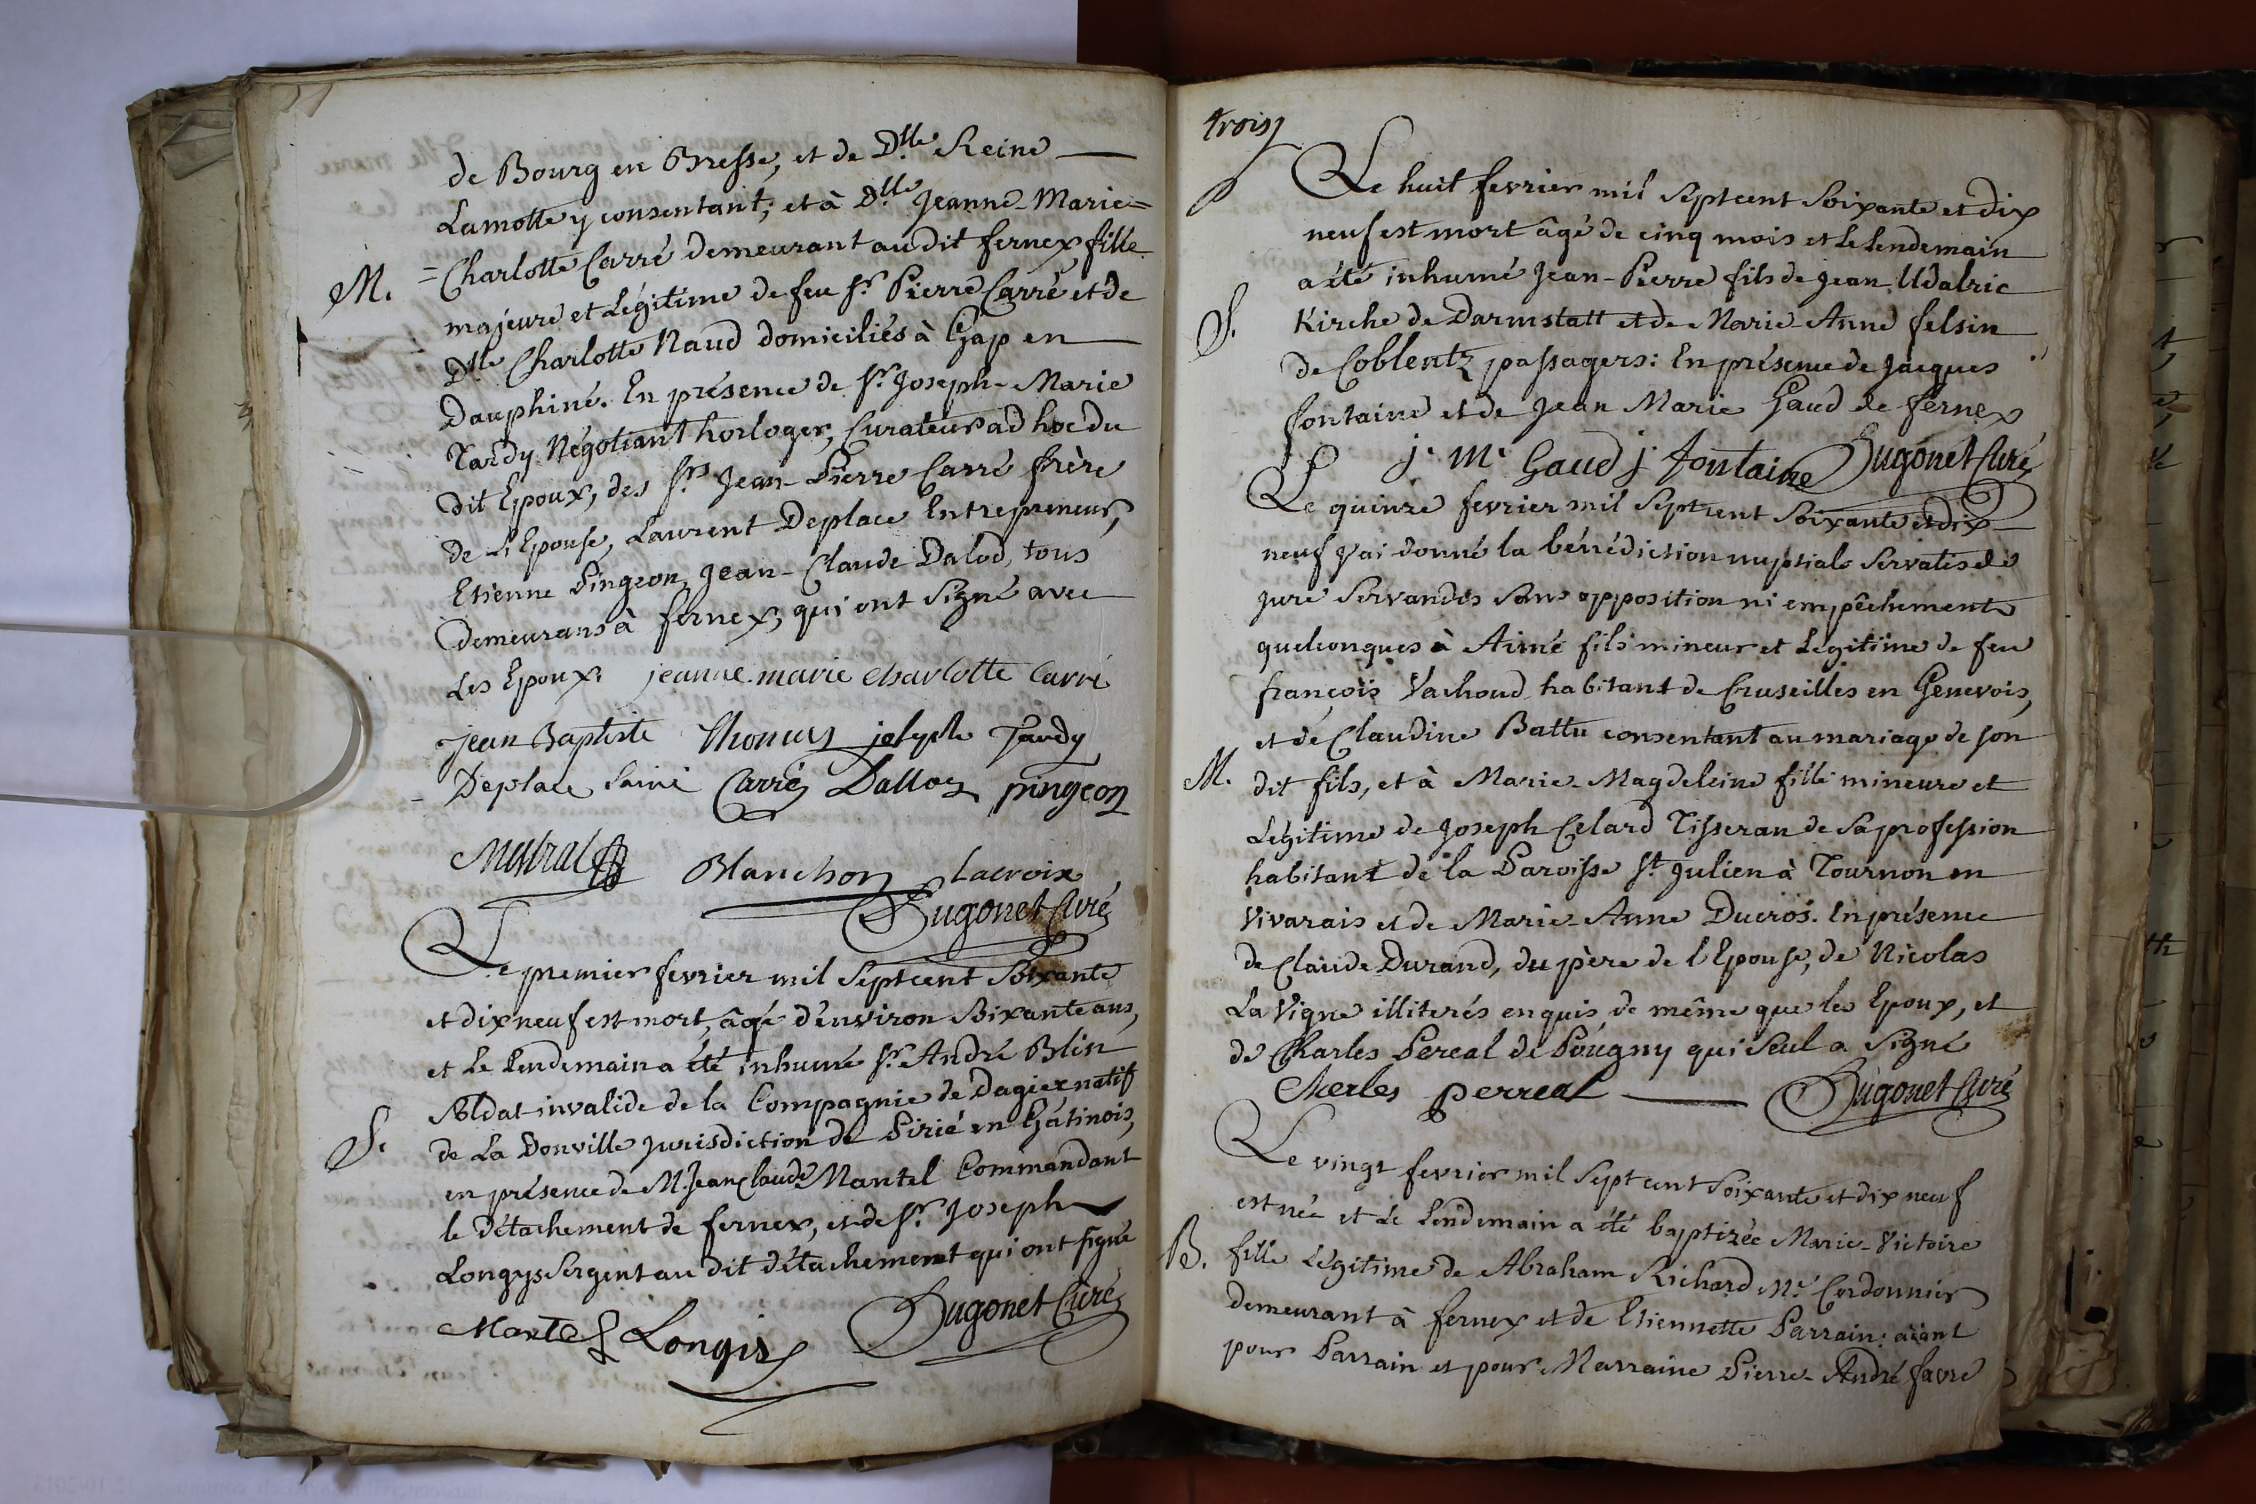 de Bourg en Bresse, et de Dlle Reine
Lamotte y consentant; et à Dlle Jeanne-Marie=
M. =Charlotte Carré demeurant audit fernex, fille
majeure et Légitime de feu Sr Pierre Carré et de
Dlle Charlotte Naud domiciliés à Gap en
Dauphiné. En présence de Sr Joseph-Marie
Tardy Négotiant horloger, Curateur ad hoc du
dit Epoux, des Srs Jean-Pierre Carré frère
de L'Epouse, Laurent Deplace Entrepreneur,
Etienne Pingeon, Jean-Claude Dalod, tous
demeurans à fernex, qui ont Signé avec
Les Epoux. jeanne marie charlotte Carré
jean Baptiste Thomas Tardy
Deplace Lainé Carré Dalloz pingeon
Mistral Blanchon Lacroix
Dugonet Curé
Le premier fevrier mil Septcent Soixante
et dix neuf est mort, âgé d'environ Soixante ans,
et Le Lendemain a été inhumé Sr André Blin
Soldat invalide de la Compagnie de Dagier natif
S. de La Donville Jurisdiction de Pirié en Gâtinois,
en présence de M. Jean Claude Mantel Commandant
le Détachement de fernex, et de Sr Joseph
Longys Sergent au dit détachement qui ont signé
Martel Longis Dugonet Curé
trois
Le huit fevrier mil Septcent Soixante et dix
neuf est mort âgé de cinq mois et Le Lendemain
a été inhumé Jean-Pierre fils de Jean Udalric
S. Kirche de Darmstatt et de Marie-Anne felsin
de Coblentz passagers: En présence de Jacques
fontaine et de Jean Marie Gaud de fernex
j. M. Gaud j. fontaine Dugonet Curé
Le quinze fevrier mil Septcent Soixante et dix
neuf J'ai donné la bénédiction nuptiale Servatis de
Jure Servandis Sans opposition ni empêchements
quelconques à Aimé fils mineur et Légitime de feu
françois Vachoud habitant de Cruseilles en Genevois,
et de Claudine Battu consentant au mariage de son
M. dit fils, et à Marie-Magdeleine fille mineure et
Légitime de Joseph Celard Tisseran de Sa profession
habitant de la Paroisse St Julien à Tournon en
Vivarais et de Marie-Anne Ducros. En présence
de Claude Durand, du père de l'Epouse, de Nicolas
La Vigne illiterés enquis de même que les Epoux, et
de Charles Pereal de Pougny qui Seul a Signé
Cherles perreal Dugonet Curé
Le vingt fevrier mil Sept cent Soixante et dix neuf
est née et Le Lendemain a été baptizée Marie-Victoire
B. fille Légitime de Abraham Richard Me Cordonnier
demeurant à fernex et de Etiennette Parrain: aïant
pour Parrain et pour Marraine Pierre-André favre